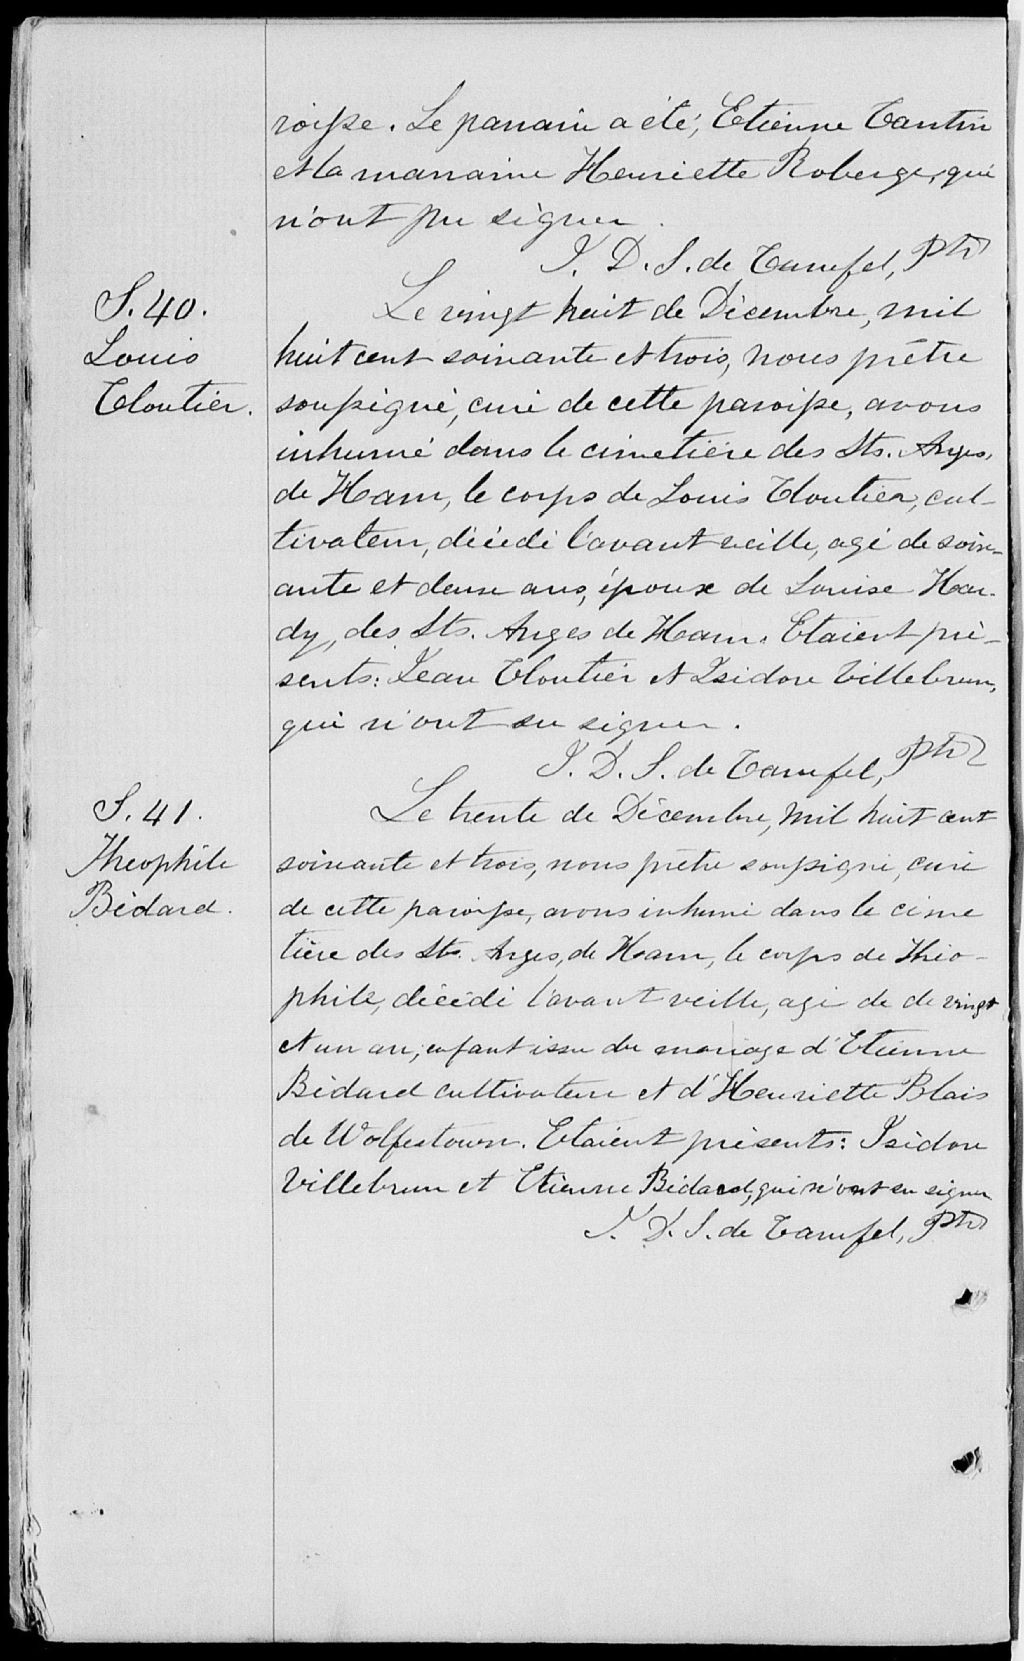 roisse. Le parrain a été, Etienne Tantin
et la marraine Henriette Roberge, qui
n'ont pu signer.
J. D. S. de Camfel, Ptr
S. 40.
Louis
Cloutier.
Le vingt huit de Décembre, mil
huit cent soixante et trois, nous prêtre
soussigné, curé de cette paroisse, avons
inhumé dans le cimetière des Sts. Anges,
de Ham, le corps de Louis Cloutier, cul-
tivateur, décédé l'avant veille, agé de soix-
ante et deux ans, époux de Louise Har-
dy, des Sts. Anges de Ham. Etaient pré-
sents: Jean Cloutier et Isidore Villebrun,
qui n'ont su signer.
J. D. S. de Camfel, Ptr
S. 41.
Theophile
Bédard.
Le trente de Décembre, mil huit cent
soixante et trois, nous prêtre soussigné, curé
de cette paroisse, avons inhumé dans le cime
tière des Sts. Anges, de Ham, le corps de Théo-
phile, décédé l'avant veille, agé de de vingt
et un an, enfant issu du mariage d'Etienne
Bédard cultivateur et d'Henriette Blais
de Wolfestown. Etaient présents: Isidore
Villebrun et Etienne Bédard, qui n'ont su signer
J. D. S. de Camfel, Ptr